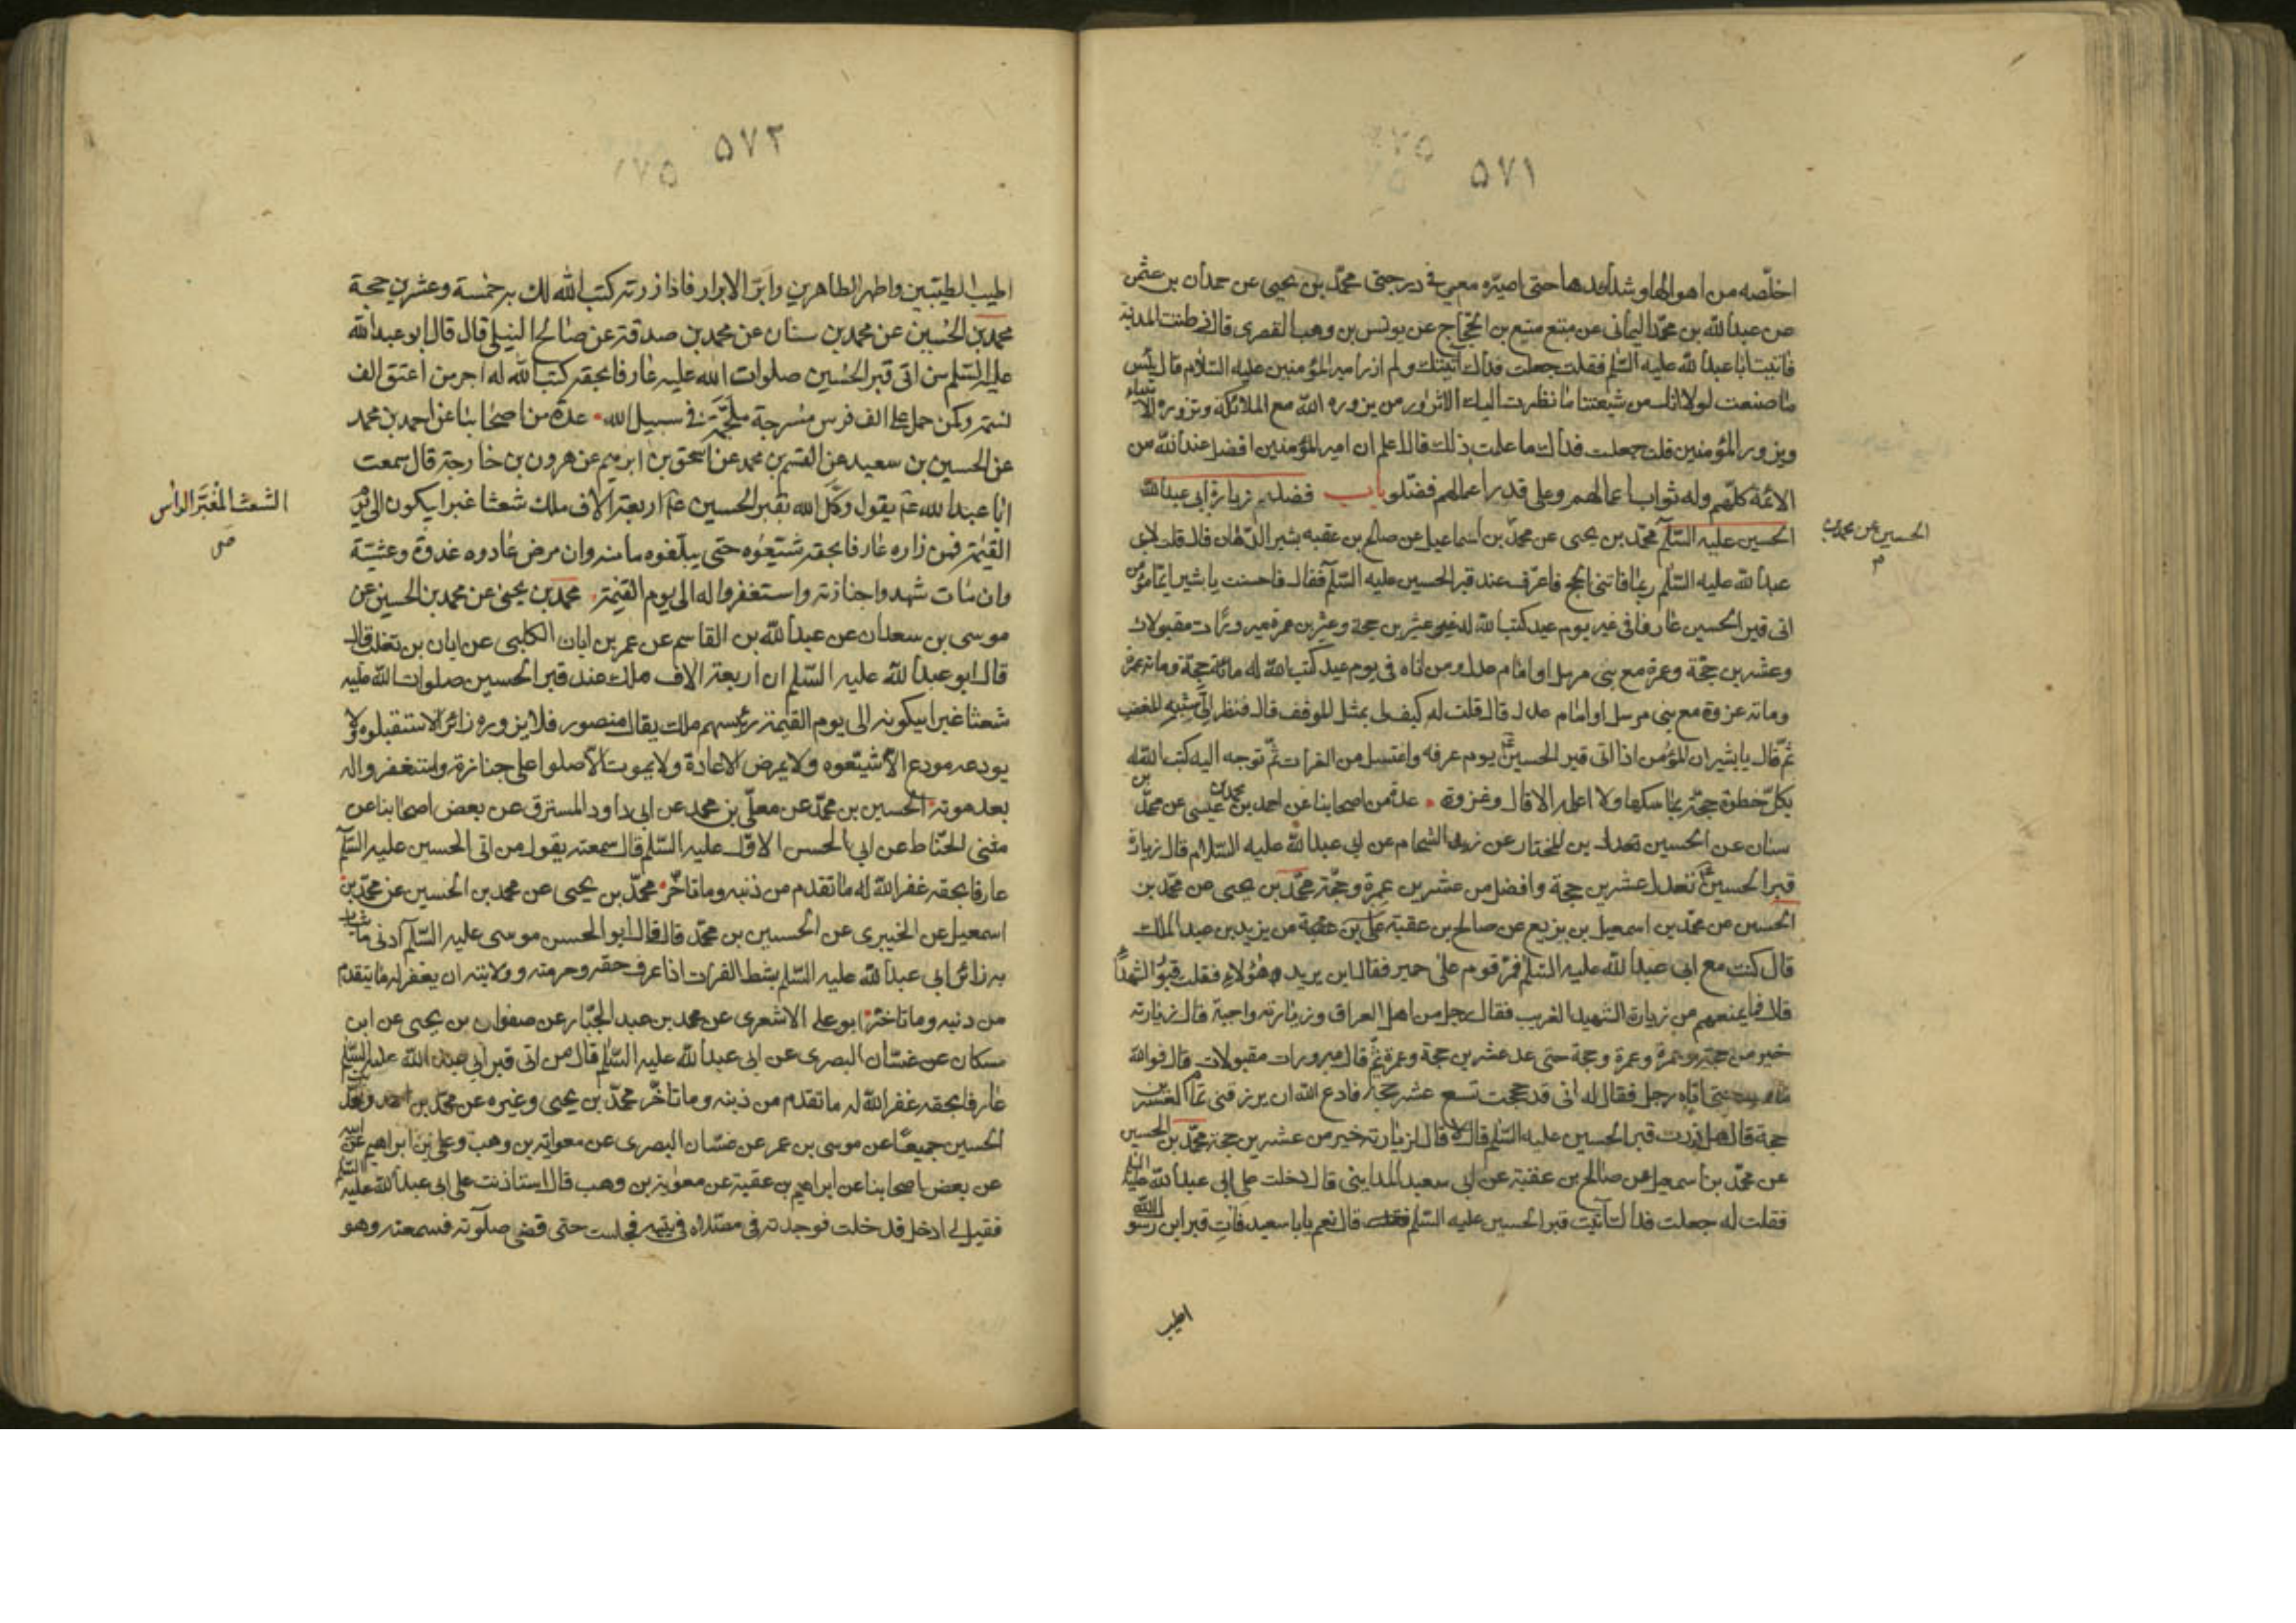 ۵۷۱
اخلّصه من اهوالها وشدايدها حتى اصيّره معي في درجتى محمّد بن يحيى عن حمدان بن عثمن
عن عبدالله بن محمّد اليمانى عن منيع بن الحجّاج عن يونس بن وهب القصرى قال دخلت المدينة
فاتيت اباعبدالله عليه السّلم فقلت جعلت فداك اتيتك ولم ازر امير المؤمنين عليه السّلام قال بئس
ما صنعت لولا انك من شيعتنا ما نظرت اليك الا تزور من يزوره الله مع الملائكة وتزوره الانبياء
ويزوره المؤمنين قلت جعلت فداك ما علمت ذلك قال اعلم ان امير المؤمنين افضل عند الله من
الائمة كلّهم وله ثواب اعمالهم وعلى قدر اعمالهم فضّلوا باب فضل زيارة ابى عبدالله
الحسين عليه السّلم محمّد بن يحيى عن محمّد بن اسماعيل عن صالح بن عقبه بشير الدّهان قال قلت لابى
الحسين عن محمد بن
م
عبدالله عليه السّلم ربّما فاتنى الحج فاعرّف عند قبر الحسين عليه السّلم فقال احسنت يا بشير ايّما مؤمن
اتى قبر الحسين عارفا فى غير يوم عيد كتب الله له عشرين حجة وعشرين عمرة مبرورات مقبولات
وعشرين حجّة وعمرة مع نبى مرسل او امام عدل ومن اتاه فى يوم عيد كتب الله له مائة حجّة ومائة عمرة
ومائة غزوة مع نبى مرسل او امام عدل قال قلت له كيف لى بمثل الموقف قال فنظر الىّ شبه المغضب
ثمّ قال يا بشير ان المؤمن اذا اتى قبر الحسين يوم عرفه واغتسل من الفرات ثمّ توجه اليه كتب الله له
بكلّ خطوة حجّة بمناسكها ولا اعلمه الا قال وغزوة عدة من اصحابنا عن احمد بن محمد بن عيسى عن محمّد بن
سنان عن الحسين بن المختار عن زيد الشحام عن ابى عبدالله عليه السّلام قال زيارة
قبر الحسين تعدل عشرين حجة وافضل من عشرين عمرة وحجّة محمّد بن يحيى عن محمّد بن
الحسين عن محمّد بن اسمعيل بن بزيع عن صالح بن عقبة عن يزيد بن عبد الملك
قال كنت مع ابى عبدالله عليه السّلم فمرّ قوم على حمير فقال اين يريد هؤلاء فقلت قبور الشهداء
قال فما يمنعهم من زيارة الشهيد الغريب فقال رجل من اهل العراق وزيارته واجبة قال زيارته
خير من حجة وعمرة وعمرة وحجة حتى عد عشرين حجة وعمرة ثمّ قال مبرورات مقبولات قال فوالله
حتى اتاه رجل فقال له انى قد حججت تسع عشر حجة فادع الله ان يرزقنى تمام العشرين
حجة قال هل زرت قبر الحسين عليه السّلم قال لا قال لزيارته خير من عشرين حجة محمّد بن الحسين
عن محمّد بن اسمعيل عن صالح بن عقبة عن ابى سعيد المداينى قال دخلت على ابى عبدالله عليه السّلم
فقلت له جعلت فداك آتيت قبر الحسين عليه السّلم قال نعم يا با سعيد فات قبر ابن رسول الله
اطيب
۵۷۲
اطيب الطيّبين واطهر الطاهرين وابرّ الابرار فاذا زرته كتب الله لك به خمسة وعشرين حجة
محمد بن الحُسين عن محمد بن سنان عن محمد بن صدقة عن صالح النيلى قال قال ابو عبدالله
عليه السّلم من اتى قبر الحسين صلوات الله عليه عارفا بحقه كتب الله له اجر من اعتق الف
نسمة وكمن حمل على الف فرس مسرجة ملجمة فى سبيل الله عدة من اصحابنا عن احمد بن محمد
عن الحسين بن سعيد عن القسم بن محمد عن اسحق بن ابرهيم عن هرون بن خارجة قال سمعت
ابا عبدالله عم يقول وكّل الله بقبر الحسين عم اربعة الاف ملك شعثا غبرا يبكونه الى يوم
الشعث المغبّر الراس
ص
القيمة فمن زاره عارفا بحقه شيّعوه حتى يبلغوه مامنه وان مرض عادوه غدوة وعشيّة
وان مات شهدوا جنازته واستغفروا له الى يوم القيمة محمد بن يحيى عن محمد بن الحسين عن
موسى بن سعدان عن عبدالله بن القاسم عن عمر بن ابان الكلبى عن ابان بن تغلب قال
قال ابو عبدالله عليه السّلم ان اربعة الاف ملك عند قبر الحسين صلوات الله عليه
شعثا غبرا يبكونه الى يوم القيمة رئيسهم ملك يقال منصور فلا يزوره زائر الا استقبلوه ولا
يودعه مودع الا شيّعوه ولا يمرض الا عادة ولا يموت الا صلوا على جنازته واستغفروا له
بعد موته الحسين بن محمّد عن معلّى بن محمد عن ابى داود المسترق عن بعض اصحابنا عن
مثنى الحنّاط عن ابى الحسن الاوّل عليه السّلم قال سمعته يقول من اتى الحسين عليه السّلم
عارفا بحقه غفر الله له ما تقدم من ذنبه وما تاخّر محمّد بن يحيى عن محمد بن الحسين عن محمّد بن
اسمعيل عن الخيبرى عن الحسين بن محمّد قال قال ابو الحسن موسى عليه السّلم ادنى ما يثاب
به زائر ابى عبدالله عليه السّلم بشط الفرات اذا عرف حقه وحرمته وولايته ان يغفر له ما تقدم
من ذنبه وما تاخّر ابو على الاشعرى عن محمد بن عبد الجبّار عن صفوان بن يحيى عن ابن
مسكان عن غسّان البصرى عن ابى عبدالله عليه السّلم قال من اتى قبر ابى عبدالله عليه السّلم
عارفا بحقه غفر الله له ما تقدم من ذنبه وما تاخّر محمّد بن يحيى وغيره عن محمّد بن احمد ومحمّد بن
الحسين جميعا عن موسى بن عمر عن غسّان البصرى عن معوية بن وهب وعلى بن ابراهيم عن ابيه
عن بعض اصحابنا عن ابراهيم بن عقبة عن معوية بن وهب قال استاذنت على ابى عبدالله عليه السّلم
فقيل لى ادخل فدخلت فوجدته فى مصلّاه فى بيته فجلست حتى قضى صلوته فسمعته وهو